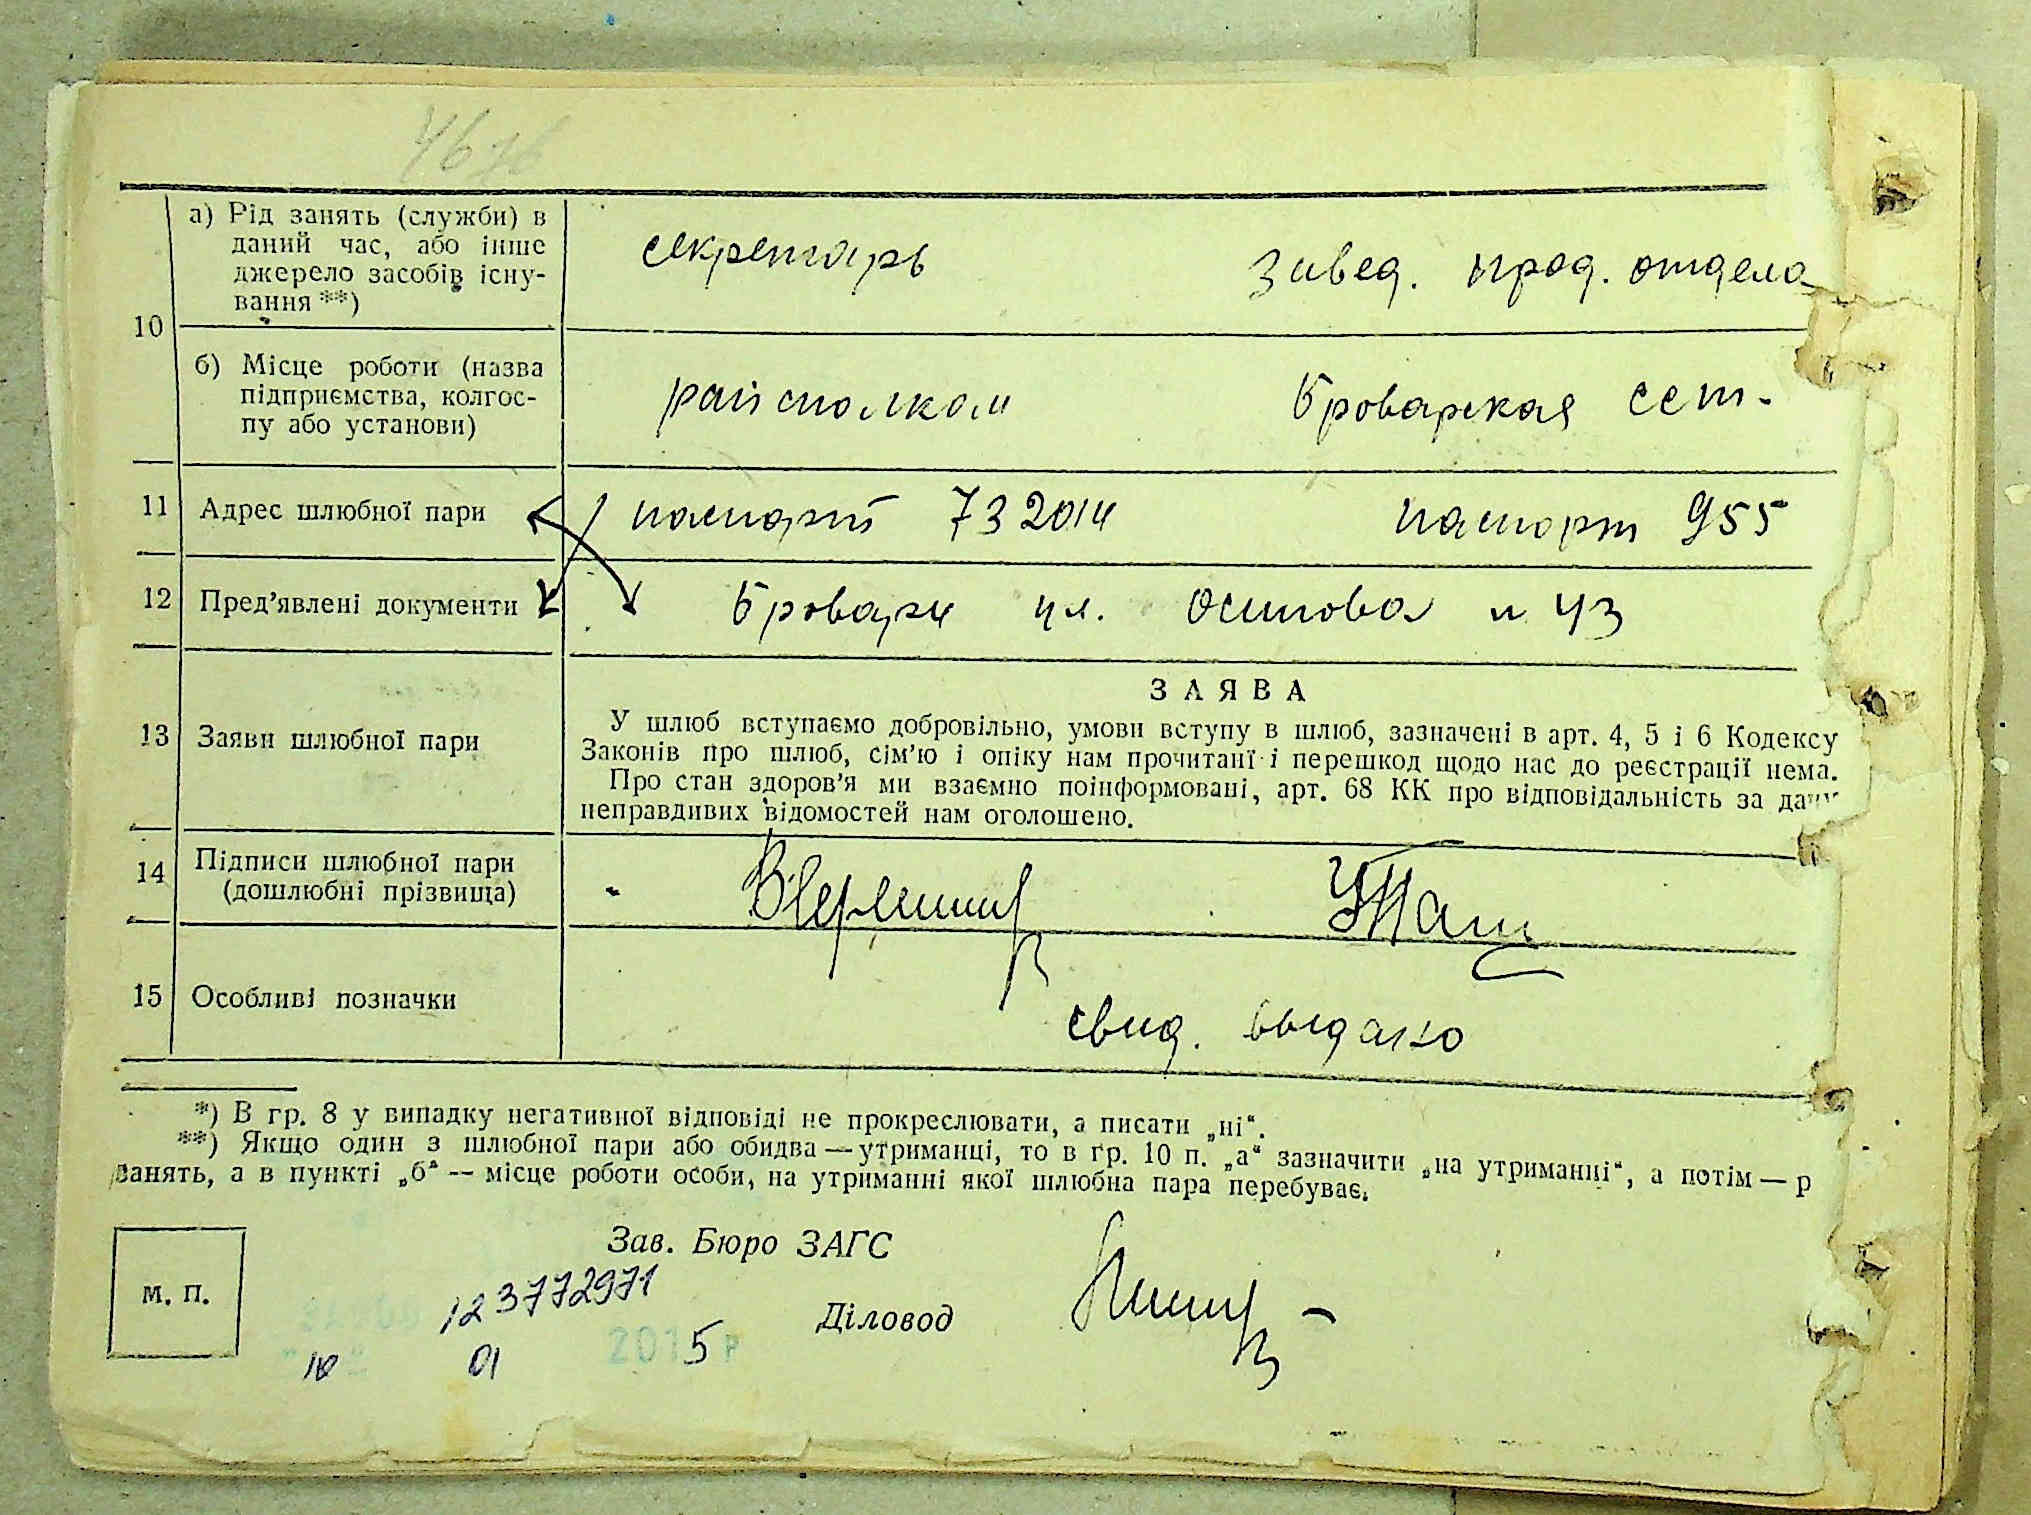 10
а) Рід занять (служби) в
даний час, або інше
джерело засобів існу-
вання **)
секретарь
Завед. прод. отдела
б) Місце роботи (назва
підприємства, колгос-
пу або установи)
райсполком
Броварская
11 Адрес шлюбної пари
паспорт 732014
паспорт 955
12 Пред'явлені документи
Бровари ул. Осипова 43
13 Заяви шлюбної пари
ЗАЯВА
У шлюб вступаємо добровільно, умови вступу в шлюб, зазначені в арт. 4, 5 і 6 Кодексу
Законів про шлюб, сім'ю і опіку нам прочитані і перешкод щодо нас до реєстрації нема.
Про стан здоров'я ми взаємно поінформовані, арт. 68 КК про відповідальність за дачу
неправдивих відомостей нам оголошено.
14 Підписи шлюбної пари
(дошлюбні прізвища)
15 Особливі позначки
свид. выдано
*) В гр. 8 у випадку негативної відповіді не прокреслювати, а писати „ні“.
**) Якщо один з шлюбної пари або обидва — утриманці, то в гр. 10 п. „а“ зазначити „на утриманні“, а потім — р
занять, а в пункті „б“ — місце роботи особи, на утриманні якої шлюбна пара перебуває.
Зав. Бюро ЗАГС
м. п.
123772971
Діловод
10 01 2015 р